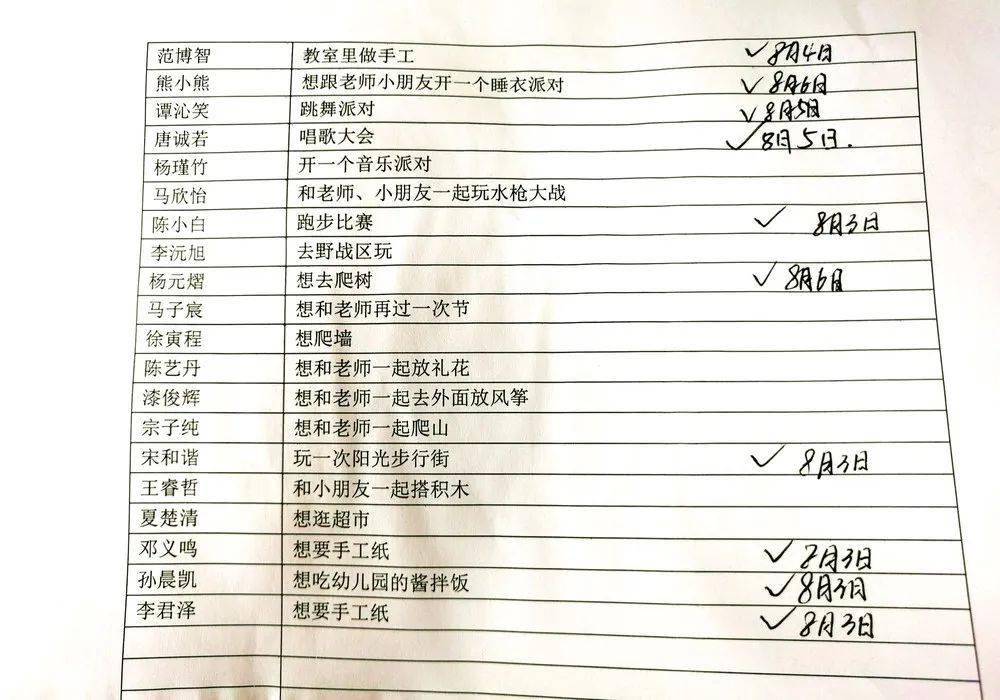 范博智 教室里做手工 ✓8月4日
熊小熊 想跟老师小朋友开一个睡衣派对 ✓8月6日
谭沁笑 跳舞派对 ✓8月5日
唐诚若 唱歌大会 ✓8月5日.
杨瑾竹 开一个音乐派对
马欣怡 和老师、小朋友一起玩水枪大战
陈小白 跑步比赛 ✓ 8月3日
李沅旭 去野战区玩
杨元熠 想去爬树 ✓ 8月6日
马子宸 想和老师再过一次节
徐寅程 想爬墙
陈艺丹 想和老师一起放礼花
漆俊辉 想和老师一起去外面放风筝
宗子纯 想和老师一起爬山
宋和谐 玩一次阳光步行街 ✓ 8月3日
王睿哲 和小朋友一起搭积木
夏楚清 想逛超市
邓义鸣 想要手工纸 ✓ 8月3日
孙晨凯 想吃幼儿园的酱拌饭 ✓8月3日
李君泽 想要手工纸 ✓ 8月3日